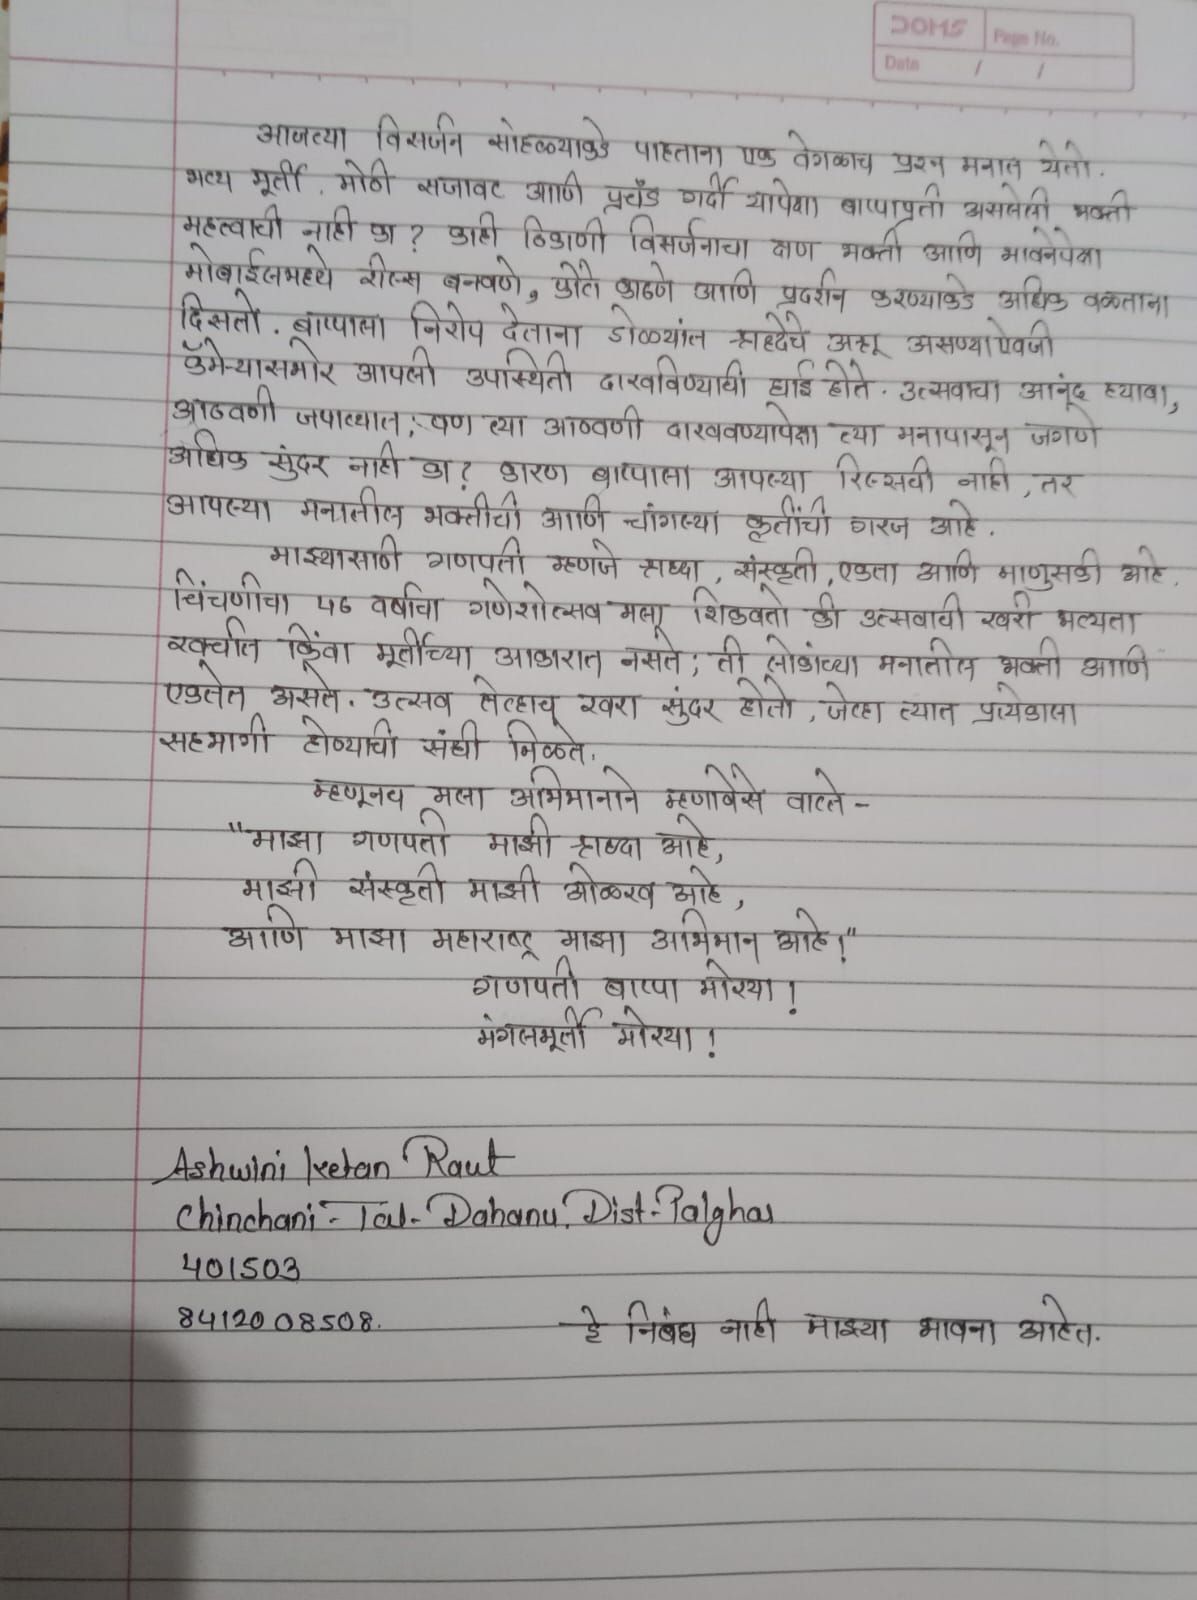 DOMS
Page No.
Date / /
आजच्या विसर्जन सोहळ्याकडे पाहताना एक वेगळाच प्रश्न मनात येतो.
भव्य मूर्ती, मोठी सजावट आणि प्रचंड गर्दी यापेक्षा बाप्पाप्रती असलेली भक्ती
महत्वाची नाही का? काही ठिकाणी विसर्जनाचा क्षण भक्ती आणि भावनेपेक्षा
मोबाईलमध्ये रील्स बनवणे, फोटो काढणे आणि प्रदर्शन करण्याकडे अधिक वळताना
दिसतो. बाप्पाला निरोप देताना डोळ्यांत श्रद्धेचे अश्रू असण्याऐवजी
कॅमेऱ्यासमोर आपली उपस्थिती दाखविण्याची घाई होते. उत्सवाचा आनंद घ्यावा,
आठवणी जपाव्यात; पण त्या आठवणी दाखवण्यापेक्षा त्या मनापासून जगणे
अधिक सुंदर नाही का? कारण बाप्पाला आपल्या रिल्सची नाही, तर
आपल्या मनातील भक्तीची आणि चांगल्या कृतींची गरज आहे.
माझ्यासाठी गणपती म्हणजे श्रध्दा, संस्कृती, एकता आणि माणुसकी आहे.
चिंचणीचा ५६ वर्षाचा गणेशोत्सव मला शिकवतो की उत्सवाची खरी भव्यता
खर्चात किंवा मूर्तीच्या आकारात नसते; ती लोकांच्या मनातील भक्ती आणि
एकतेत असते. उत्सव तेव्हाच खरा सुंदर होतो, जेव्हा त्यात प्रत्येकाला
सहभागी होण्याची संधी मिळते.
म्हणूनच मला अभिमानाने म्हणावेसे वाटते -
"माझा गणपती माझी श्रध्दा आहे,
माझी संस्कृती माझी ओळख आहे,
आणि माझा महाराष्ट्र माझा अभिमान आहे!"
गणपती बाप्पा मोरया!
मंगलमूर्ती मोरया!
Ashwini Ketan Raut
Chinchani - Tal - Dahanu, Dist - Palghar
401503
8412008508.
हे निबंध नाही माझ्या भावना आहेत.